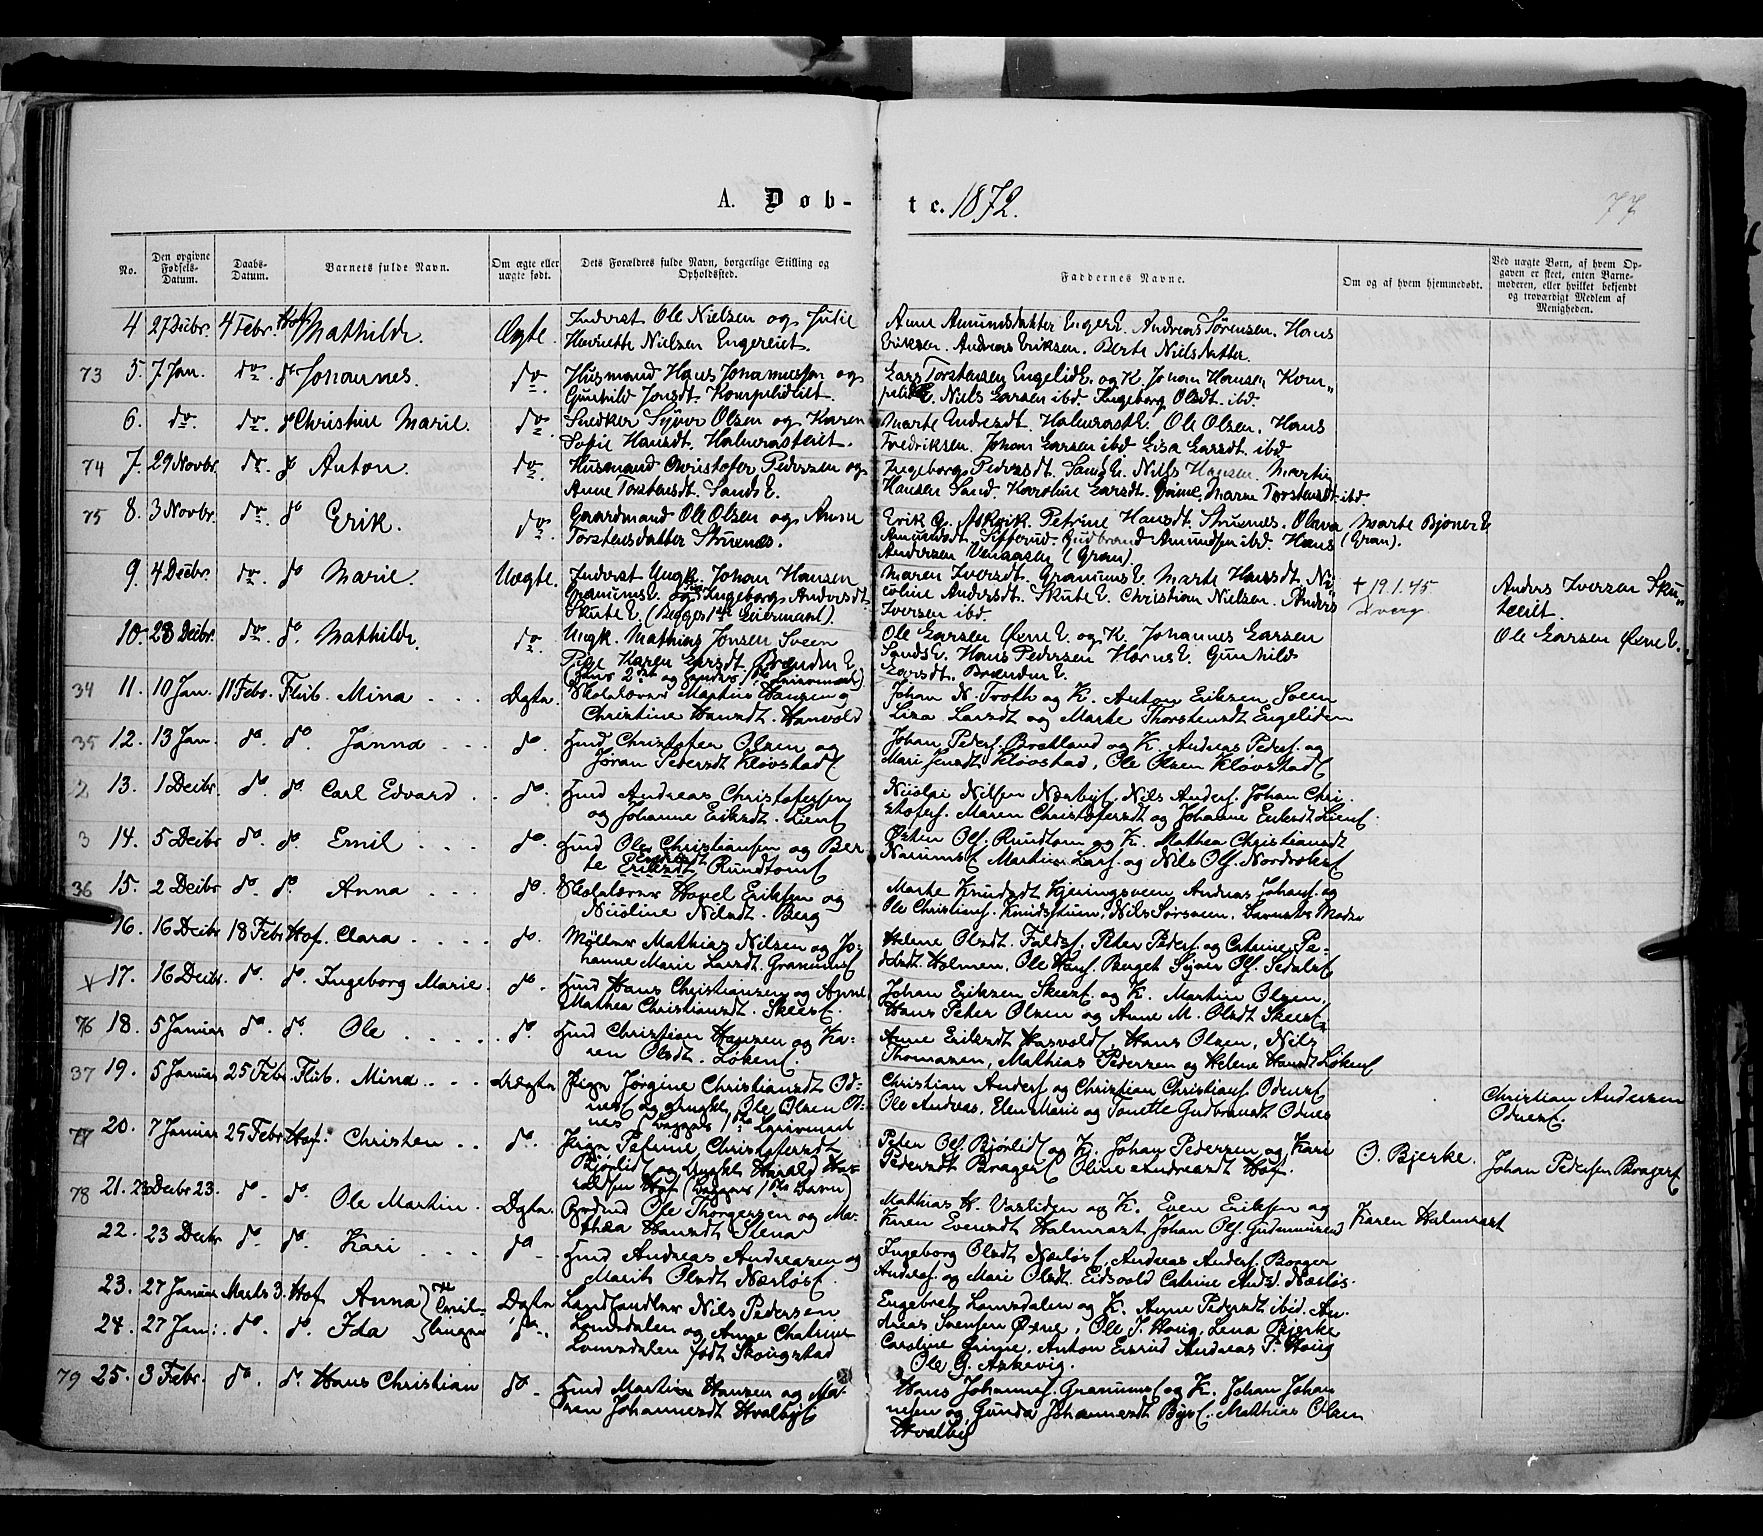 A. Døb- te. 1872.
77
No.
Den opgivne Fødsels-Datum.
Daabs-Datum.
Barnets fulde Navn.
Om ægte eller uægte født.
Dets Forældres fulde Navn, borgerlige Stilling og Opholdssted.
Faddernes Navne.
Om og af hvem hjemmedøbt.
Ved uægte Børn, af hvem Opgaven er skeet, enten Barnemoderen, eller hvilket bekjendt og troværdigt Medlem af Menigheden.
4 27 Decbr. 4 Febr. Hof Mathilde. Ægte. Inderst Ole Nielsen og Julie
Henriette Nielsen Engereiet.
Anne Amundsdatter EngerE. Andreas Sørensen. Hans
Eriksen. Andreas Eriksen. Berte Nielsdatter.
73 5. 7 Jan. do do Johannes. do Husmand Hans Johannessen og
Gunhild Jonsdt.
Lars Torstensen EngelidE. og K. Johan Hansen
Niels Larsen ibd. Ingeborg Olsdt. ibd.
6. do. do. do Christine Marie. do Snedker Syver Olsen og Karen
Sofie Hansdt. Halmrasteiet.
Marte Endresdt. HalmrastE. Ole Olsen. Hans
Fredriksen. Johan Larsen ibd Lisa Larsdt. ibd
74 7. 29 Novbr. do. do Anton. do. Husmand Christofer Pedersen og
Anne Torstensdt. SandsE.
Ingeborg Pedersdt. SandsE. Niels Hansen. Martin
Hansen Sand. Karoline Larsdt. Maren Torstensdt. ibd.
75 8. 3 Novbr. do. do Erik. do. Gaardmand Ole Olsen og Anne
Torstensdatter Struenes.
Erik G. Askvik. Petrine Hansdt. Struenes. Olava
Amundsdt. Sifferud. Gudbrand Amundsen ibd. Hans
Andersen Venaasen (Gran).
Marte BjonerE (Gran).
9. 4 Decbr. do. do Marie. Uægte. Inderst Ungk. Johan Hansen
GranumsE. og Ingeborg Andersdt.
SkuteE. (Begges 1ste Leiermaal).
Maren Iversdt. GranumsE. Marte Hansdt. Ni-
coline Andersdt. SkuteE. Christian Nielsen. Anders
Iversen ibd.
+ 19.1.45
Anders Iversen Sku-
teeiet.
10. 28 Decbr. do. do. Mathilde. do. Ungk. Mathias Jonsen Sveen
Pige Karen Larsdt. BrændenE.
(Hans 2det og hendes 1ste Leiermaal)
Ole Larsen ØvneE. og K. Johannes Larsen
SandsE. Hans Pedersen HornsE. Gunhild
Larsdt. BrændenE.
Ole Larsen ØvneE.
34 11. 10 Jan. 11 Febr. Flub. Mina Ægte. Skolelærer Martin Hansen o
Christine Hansdt. Hanvold
Johan N. Troth og K. Anton Eriksen Sveen
Lisa Larsdt og Marthe Thorstensdt Engeliden
35 12. 13 Jan. do. do. Janna do. Husmd Christofer Olsen og
Jøran Pedersdt Kløvstad
Johan Peders. Bratland og K. Andreas Peders. og
Mari Jensdt Kløvstad, Ole Olsen Kløvstad
2 13. 1 Decbr do. do. Carl Edvard do. Husmd Andreas Christofersen
og Johanne Eriksdt. Lien
Nicolai Nilsen Næsby, Nils Anders. Johan Chri-
stofers. Maren Christofersdt og Johanne Eriksdt Lien.
3 14. 5 Decbr do. do. Emil do. Husmd Ole Christiansen og Ber-
te Eriksdt Rundtom
Østen Ols. Rundtom og K. Mathea Christiansdt
Narum Martin Lars. og Nils Ols.
36 15. 2 Decbr do. do. Anna do. Skolelærer Hovel Eriksen og
Nicoline Nilsdt. Berg
Marte Knudsdt Kjeringsveen Andreas Johans. og
Ole Christians. Knudsstuen, Nils Sørsveen, Barnets Moder
16. 16 Decbr 18 Febr Hof. Clara do. Møller Mathias Nilsen og Jo-
hanne Marie Larsdt. Granums
Helene Olsdt. Falds, Peter Peders. og Catrine Pe-
dersdt Holmen, Ole Hans. Berget Syver Ols.
17. 16 Decbr. do. do. Ingeborg Marie do. Husmd Hans Christiansen og Anne
Mathea Christiansdt. Skeer
Johan Eriksen Skeer og K. Martin Olsen.
Hans Peter Olsen og Anne M. Olsdt Skeer
76 18. 5 Januar do. do. Ole do. Husmd Christian Hansen og Ka-
ren Olsdt. Løken
Anne Eriksdt Hasvold, Hans Olsen, Nils
Thomasen, Mathias Pedersen og Helene Hansdt Løken
37 19. 5 Januar 25 Febr. Flub. Mina Uægte Pige Jørgine Christiansdt Od-
nes og Ungkl. Ole Olsen Od-
nes (Begges 1ste Leiermaal
Christian Anders. og Christian Christians. Odnes
Ole Andreas, Elen Marie og Tonette Gudbrandt Odnes
Christian Andersen
Odnes.
77 20. 7 Januar 25 Febr Hof. Christen do. Pige Petrine Christofersdt
Bjørlid og Ungkl. Harald Ha-
raldsen Hof (Begges 1ste Barn)
Peter Ols. Bjørlid og K. Johan Pedersen og Kari
Pedersdt Brager Oline Andreasdt Hof.
O. Bjerke.
Johan Pedersen Brager
78 21. 23 Decbr 23. do. do. Ole Martin. Ægte. Grdmd Ole Thorgersen og Ma-
thea Hansdt Stena
Mathias H. Vasliden og K. Even Eriksen og
Karen Evensdt Halmrast Johan Ols.
Karen Halmrast
22. 23 Decbr do. do. Kari do. Husmd Andreas Andreasen og
Marit Olsdt. Nærløs.
Ingeborg Olsdt Nærløs, Andreas Anders. Borger
Andreas. og Mari Olsdt. Eidsvold Catrine Andsd. Nærløs.
23. 27 Januar Marts 3. Hof Anna Tvil- Ægte Landhandler Nils Pedersen
24. 27 Jan: do. do. Ida linger do. Lomsdalen og Anne Chatrine
Lomsdalen født Skougstad
Engebret Lomsdalen og K. Anne Pedersdt ibid. An-
dreas Svensen Øvne, Ole J. Houg, Lena Bjerke
Caroline Gringie, Anton Eisrud Andreas P. Houg
Ole G. Askevig.
79 25. 3 Febr. do. do. Hans Christian do. Husmd Martin Hansen og Ma-
ren Johannesdt Hvalby
Hans Johannes. Granum og K. Johan Johan-
nesen og Gunda Johannesdt Bys. Mathias Olsen
Hvalby